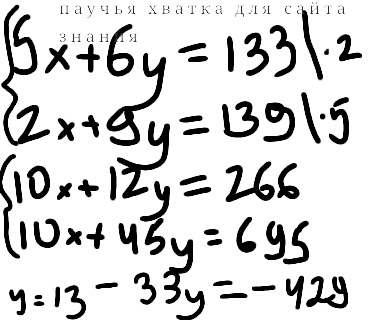 паучья хватка для сайта
знания
5x+6y=133|·2
2x+9y=139|·5
10x+12y=266
10x+45y=695
y=13 -33y=-429